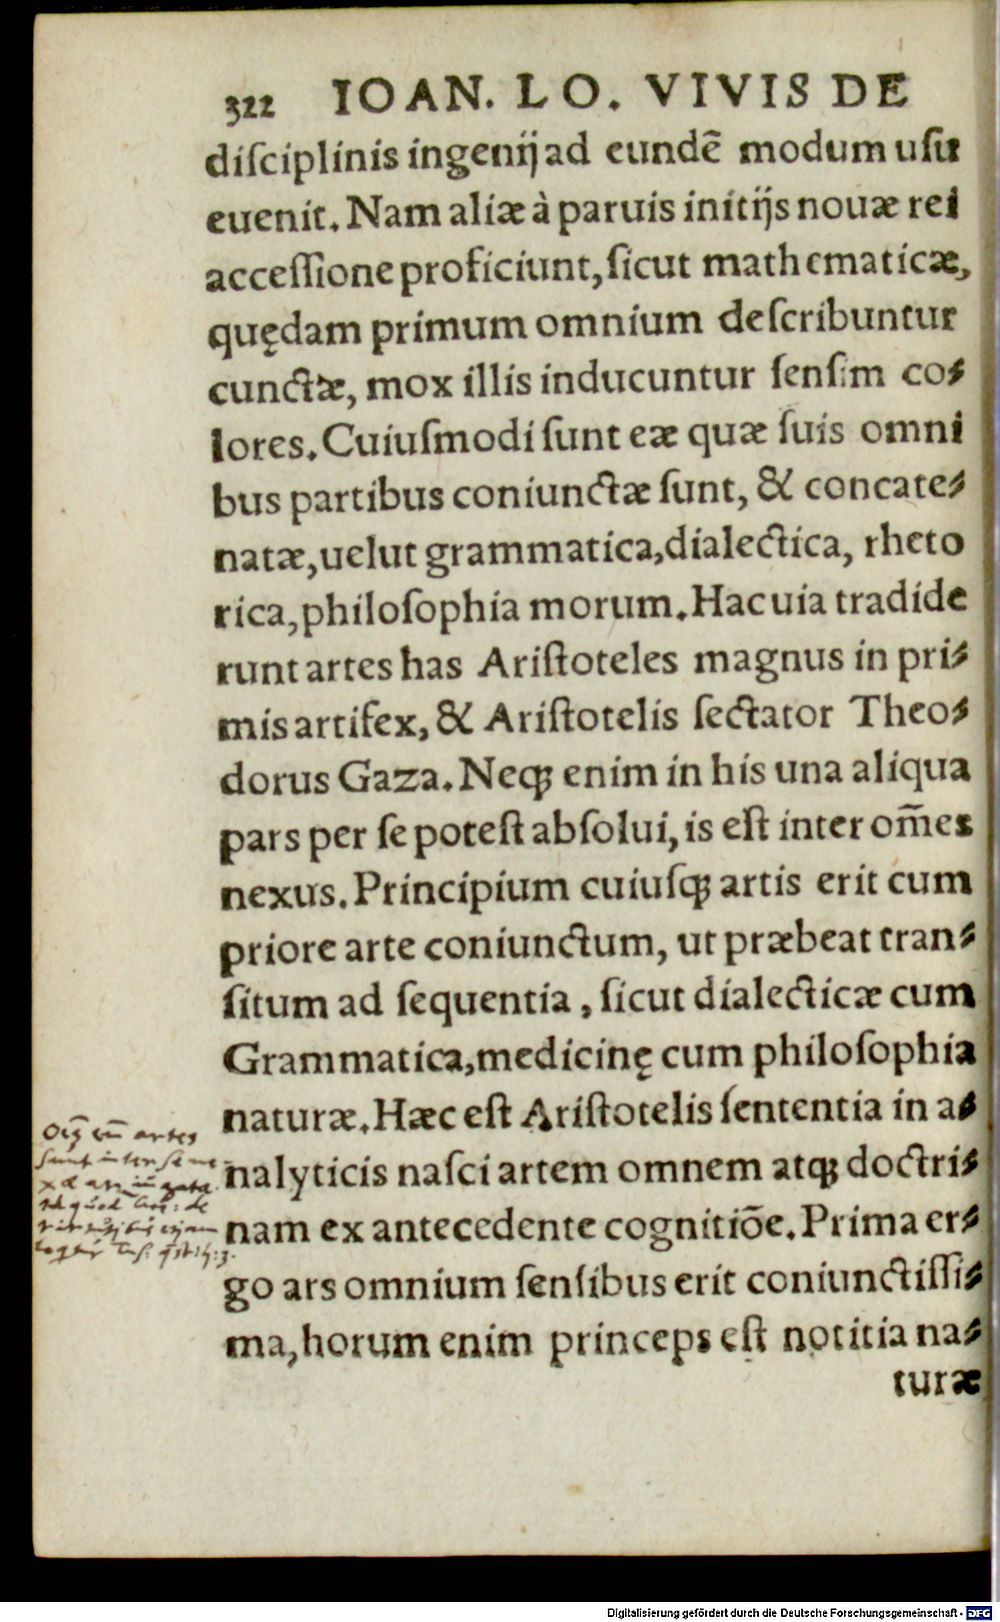 322 IOAN. LO. VIVIS DE
diſciplinis ingenij ad eundē modum uſu
euenit. Nam aliæ à paruis initijs nouæ rei
acceſſione proficiunt, ſicut mathematicæ,
quędam primum omnium deſcribuntur
cunctæ, mox illis inducuntur ſenſim co⸗
lores. Cuiuſmodi ſunt eæ quæ ſuis omni
bus partibus coniunctæ ſunt, & concate⸗
natæ, uelut grammatica, dialectica, rheto
rica, philoſophia morum. Hac uia tradide
runt artes has Ariſtoteles magnus in pri⸗
mis artifex, & Ariſtotelis ſectator Theo⸗
dorus Gaza. Neq; enim in his una aliqua
pars per ſe poteſt abſolui, is eſt inter om̄es
nexus. Principium cuiuſq; artis erit cum
priore arte coniunctum, ut præbeat tran⸗
ſitum ad ſequentia, ſicut dialecticæ cum
Grammatica, medicinę cum philoſophia
naturæ. Hæc eſt Ariſtotelis ſententia in a⸗
nalyticis naſci artem omnem atq; doctri⸗
nam ex antecedente cognitiōe. Prima er⸗
go ars omnium ſenſibus erit coniunctiſſi⸗
ma, horum enim princeps eſt notitia na⸗
turæ
artes
sunt inter se ne
Digitalisierung gefördert durch die Deutsche Forschungsgemeinschaft - DFG